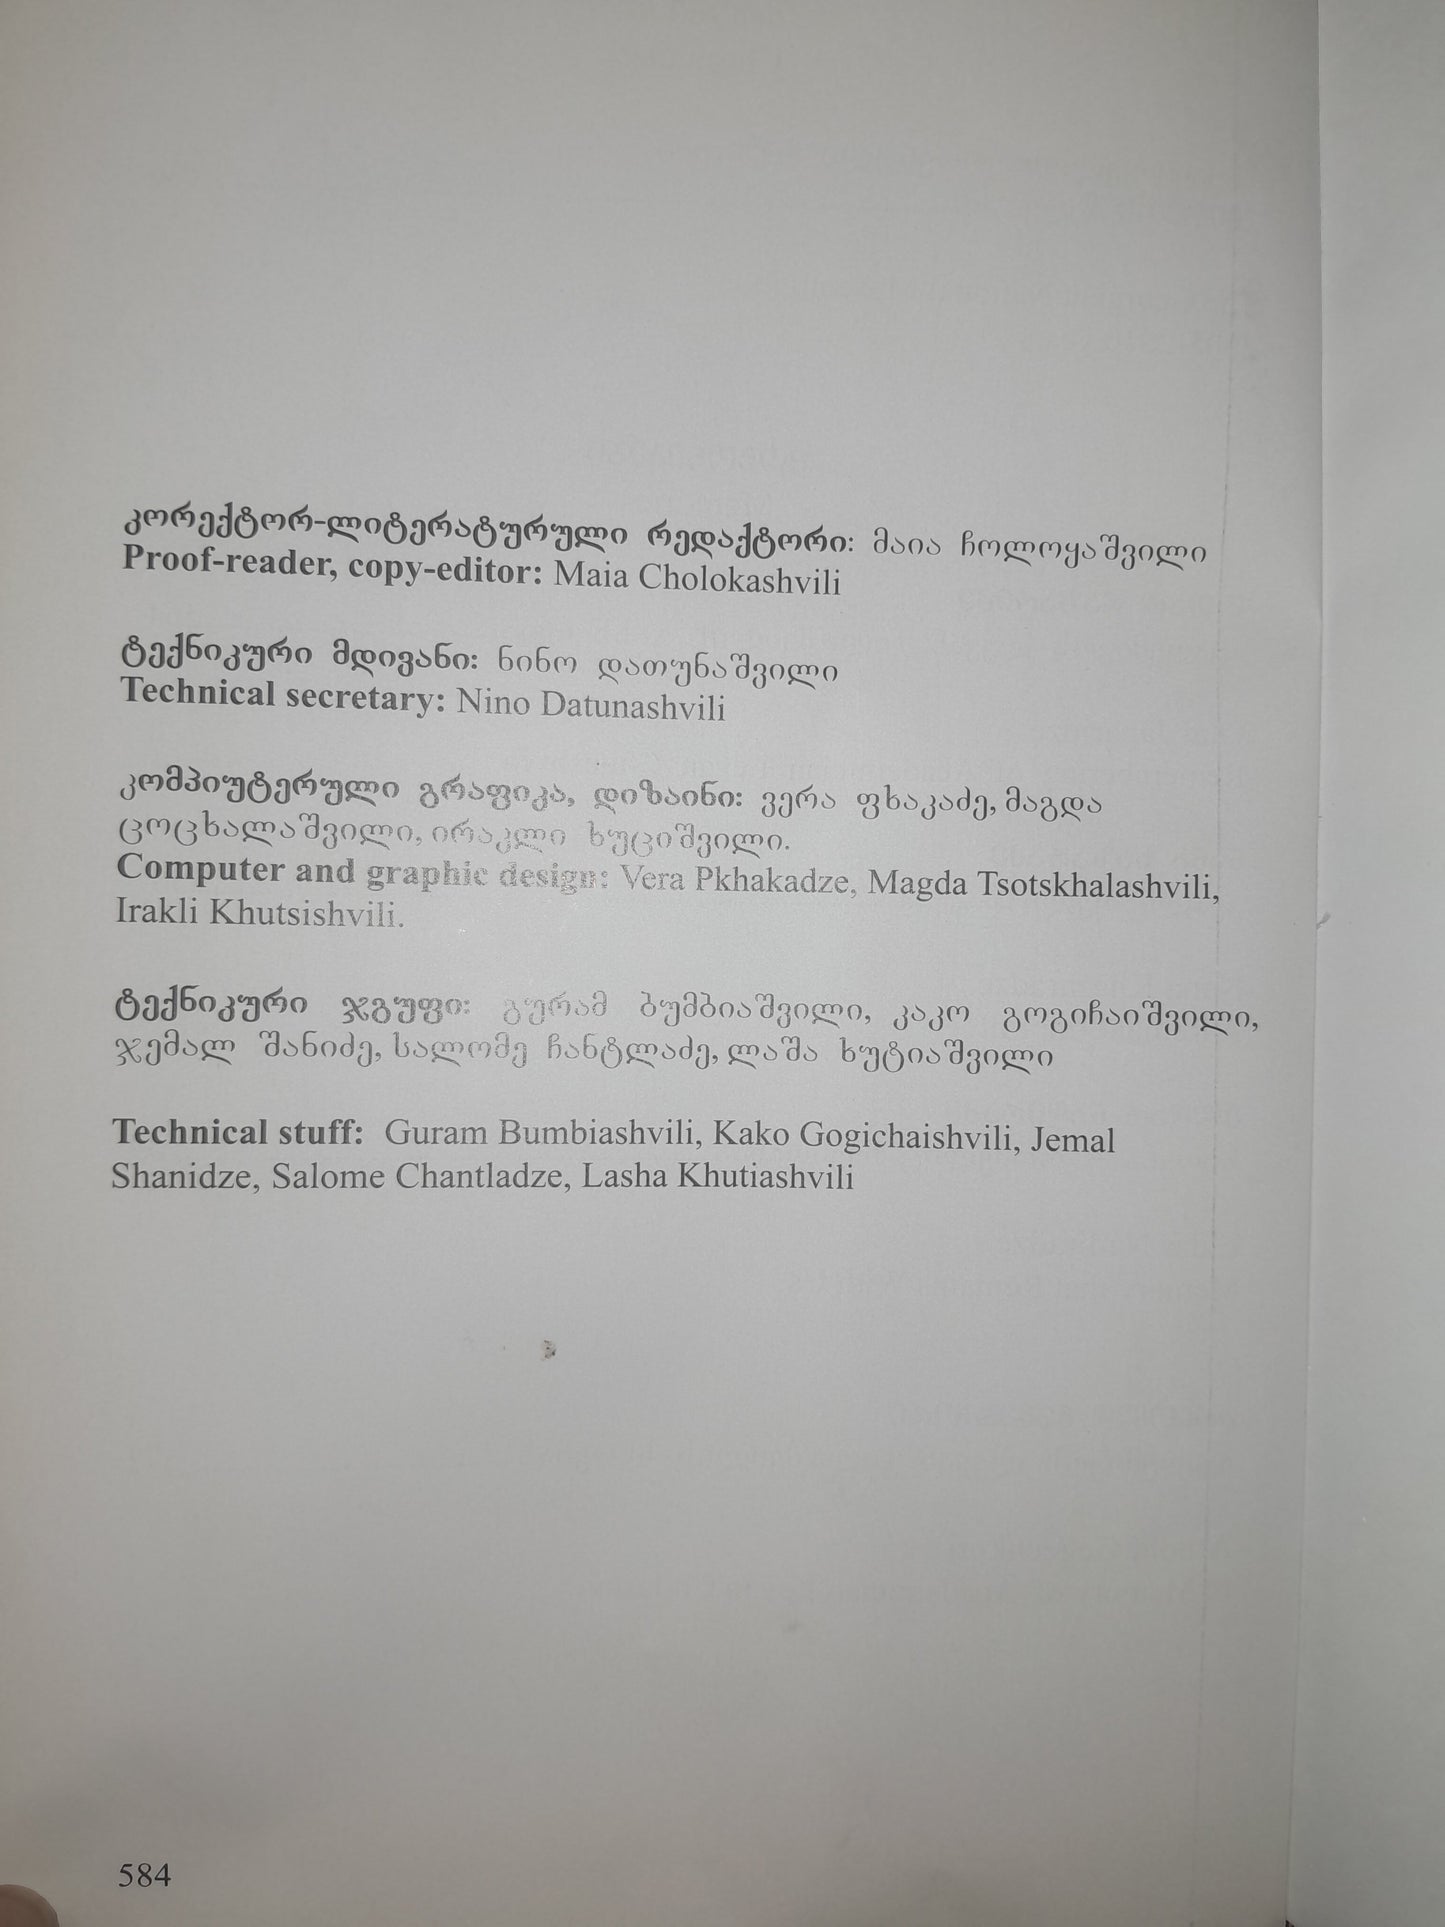 კორექტორ-ლიტერატურული რედაქტორი: მაია ჩოლოყაშვილი
Proof-reader, copy-editor: Maia Cholokashvili
ტექნიკური მდივანი: ნინო დათუნაშვილი
Technical secretary: Nino Datunashvili
კომპიუტერული გრაფიკა, დიზაინი: ვერა ფხაკაძე, მაგდა
ცოცხალაშვილი, ირაკლი ხუციშვილი.
Computer and graphic design: Vera Pkhakadze, Magda Tsotskhalashvili,
Irakli Khutsishvili.
ტექნიკური ჯგუფი: გურამ ბუმბიაშვილი, კაკო გოგიჩაიშვილი,
ჯემალ შანიძე, სალომე ჩანტლაძე, ლაშა ხუტიაშვილი
Technical stuff: Guram Bumbiashvili, Kako Gogichaishvili, Jemal
Shanidze, Salome Chantladze, Lasha Khutiashvili
584